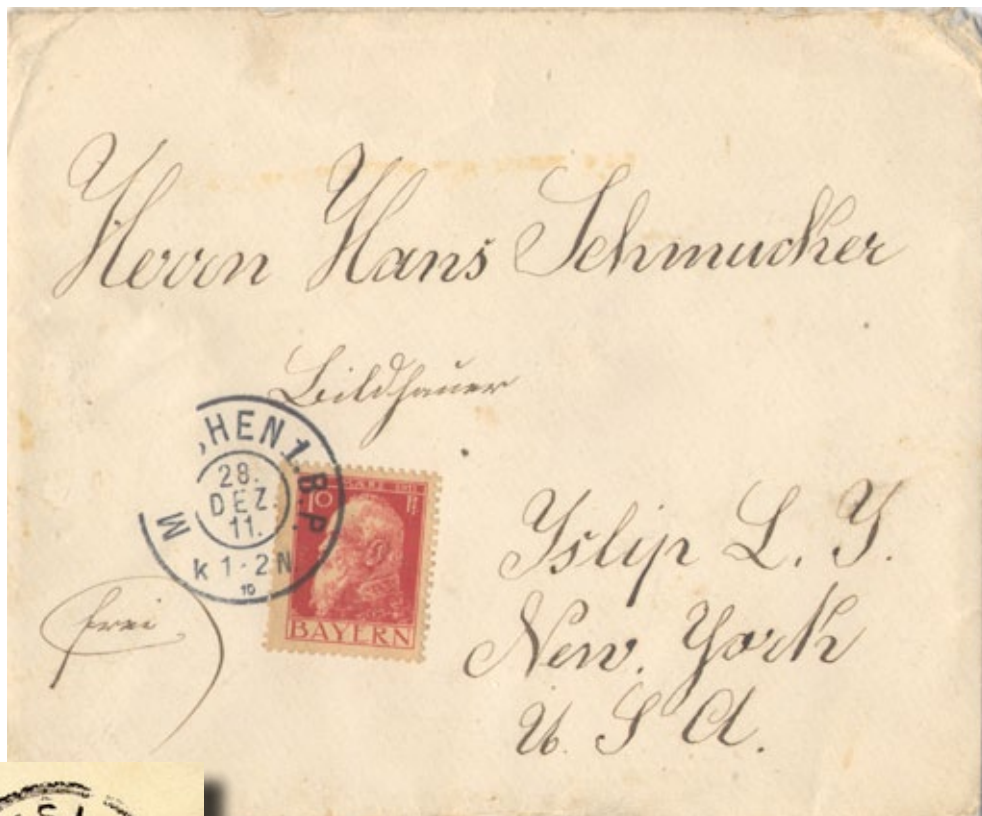 Herrn Hans Schmucker
Bildhauer
HEN 1. B.P.
28.
DEZ.
11.
M
k 1-2 N.
10
1911
10
BAYERN
frei
Yslip L. Y.
New. York
U. S A.